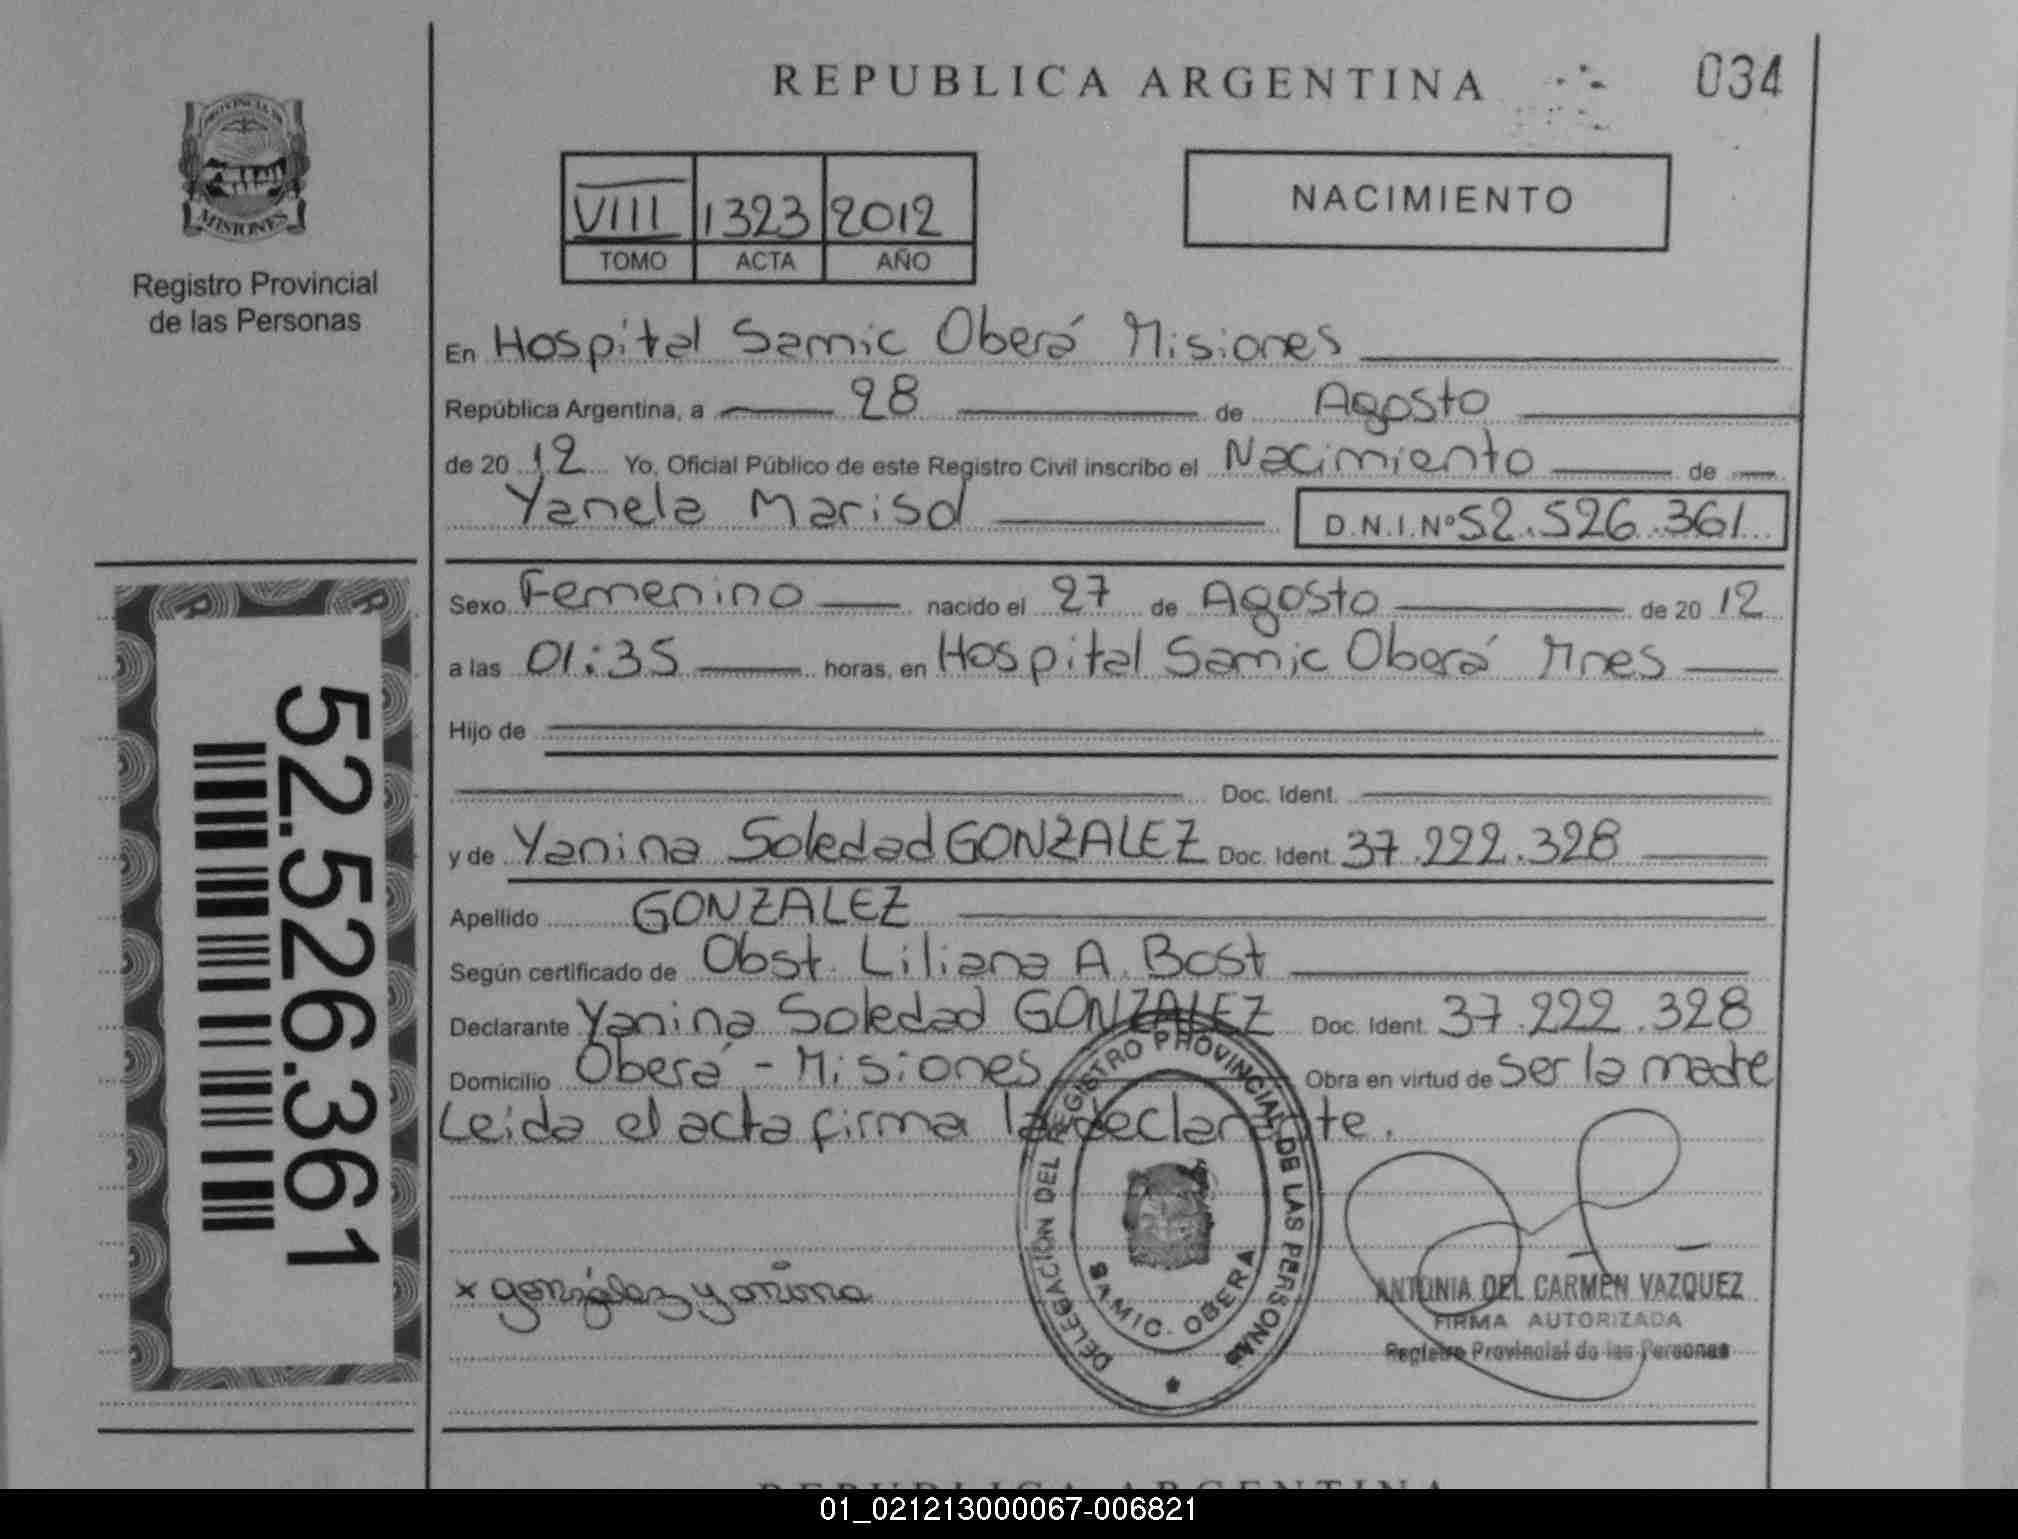 REPUBLICA ARGENTINA
034
PROVINCIA DE
MISIONES
Registro Provincial
de las Personas
VIII 1323 2012
TOMO ACTA AÑO
NACIMIENTO
En Hospital Samic Oberá Misiones
República Argentina, a 28 de Agosto
de 2012 Yo, Oficial Público de este Registro Civil inscribo el Nacimiento de
Yanela Marisol D.N.I.Nº 52.526.361
Sexo Femenino nacido el 27 de Agosto de 2012
a las 01:35 horas, en Hospital Samic Oberá Mnes
Hijo de
Doc. Ident.
y de Yanina Soledad GONZALEZ Doc. Ident. 37.222.328
Apellido GONZALEZ
Según certificado de Obst. Liliana A. Bost
Declarante Yanina Soledad GONZALEZ Doc. Ident. 37.222.328
Domicilio Oberá - Misiones Obra en virtud de ser la madre
Leida el acta firma la declarante.
52.526.361
x gonzález yanina
DELEGACIÓN DEL REGISTRO PROVINCIAL DE LAS PERSONAS
SAMIC. OBERA
ANTONIA DEL CARMEN VAZQUEZ
FIRMA AUTORIZADA
Registro Provincial de las Personas
REPUBLICA ARGENTINA
01_021213000067-006821